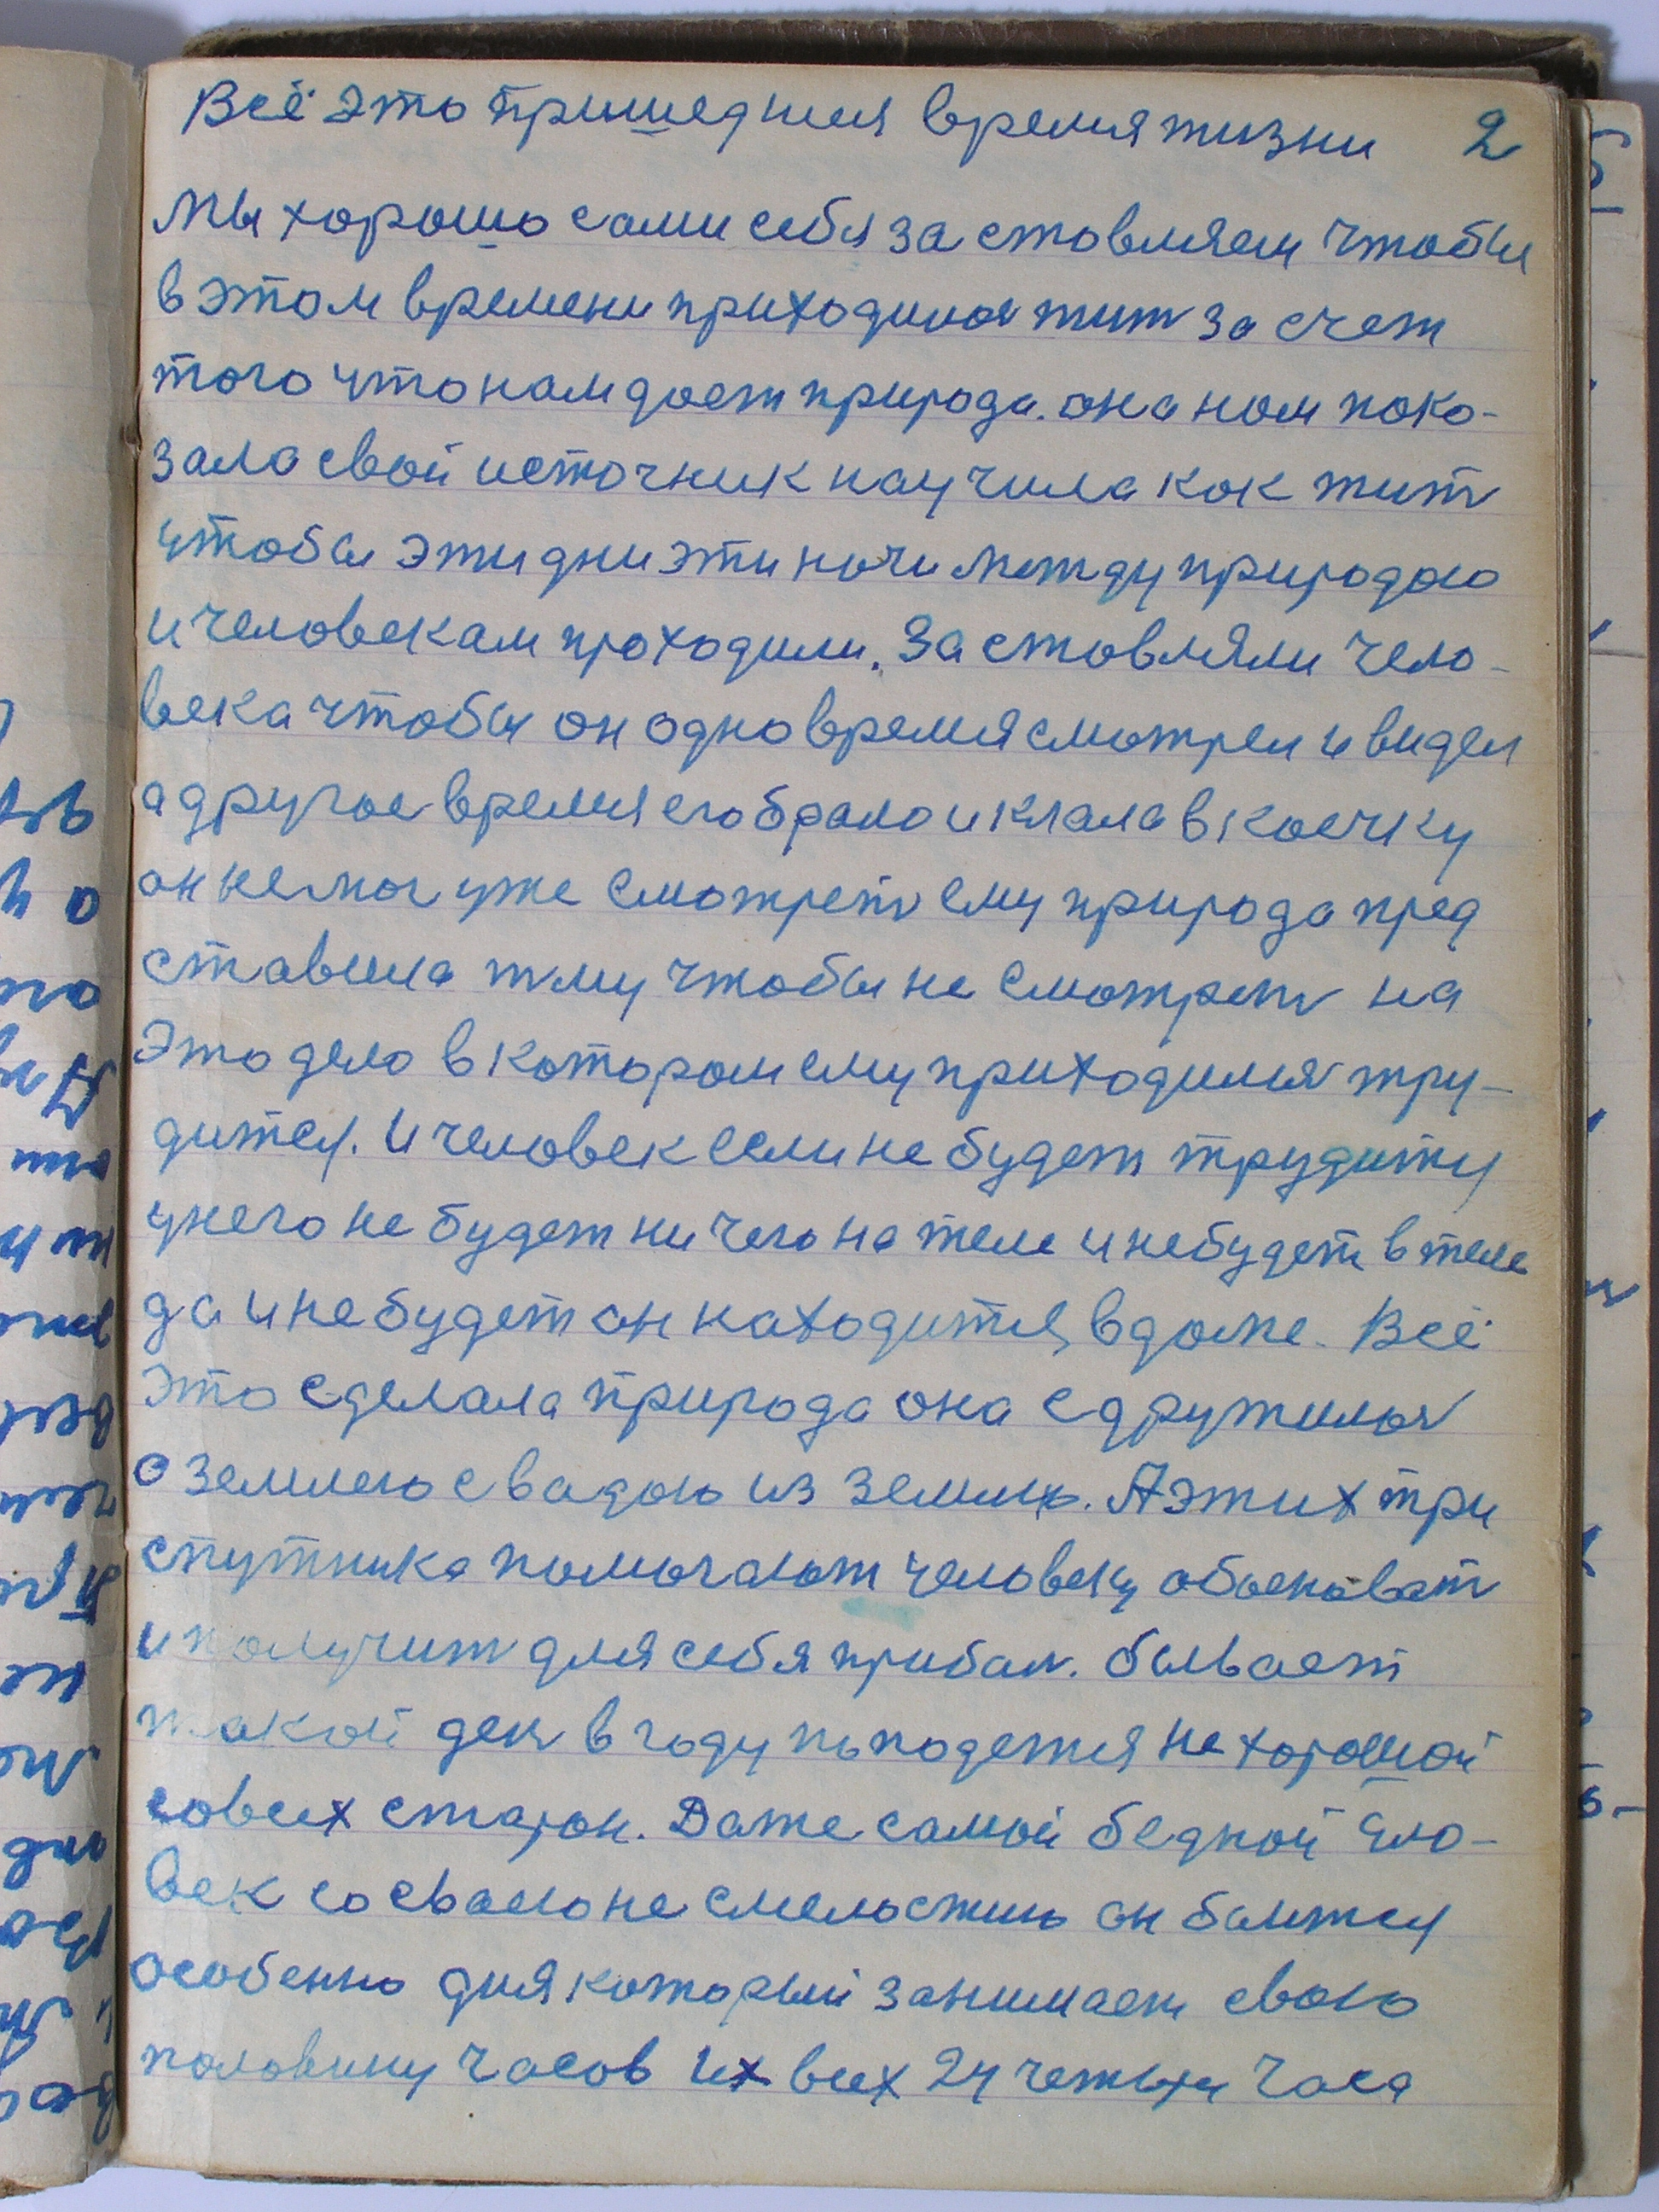 Всё это пришедшея время жизни 2
мы хорошо сами себя заставляем чтобы
в этом времени приходилося жит за счет
того что нам дает природа. она нам пока-
зала свой источник научила как жит
чтобы эти дни эти ночи между природою
и человекам проходили. Заставляли чело-
века чтобы он одно время смотрел и видел
а другое время его брало и клала в коечку
он не мог уже смотрет ему природа пред
ставила тму чтобы не смотрет на
Это дело в котором ему приходился тру-
дится. и человек если не будет трудится
у него не будет ни чего на теле и не будет в теле
да и не будет он находится в доме. Всё
это сделала природа она сдружилася
с землею с вадою из земли. А этих три
спутника помогают человеку обосноват
и получит для себя прибал. бывает
такой ден в году попадется не хорошой
со всех старон. Даже самой бедной чло-
век со сваею не смелостию он боится
особенно дня который занимает свою
половину часов их всех 24 четыри часа